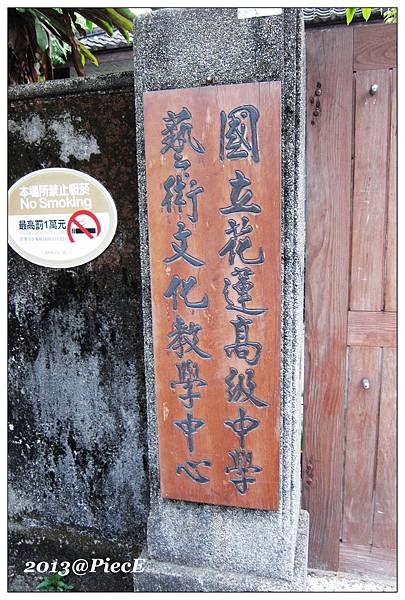 國立花蓮高級中學
藝術文化教學中心
本場所禁止吸菸
No Smoking
最高罰1萬元
2013@PiecE